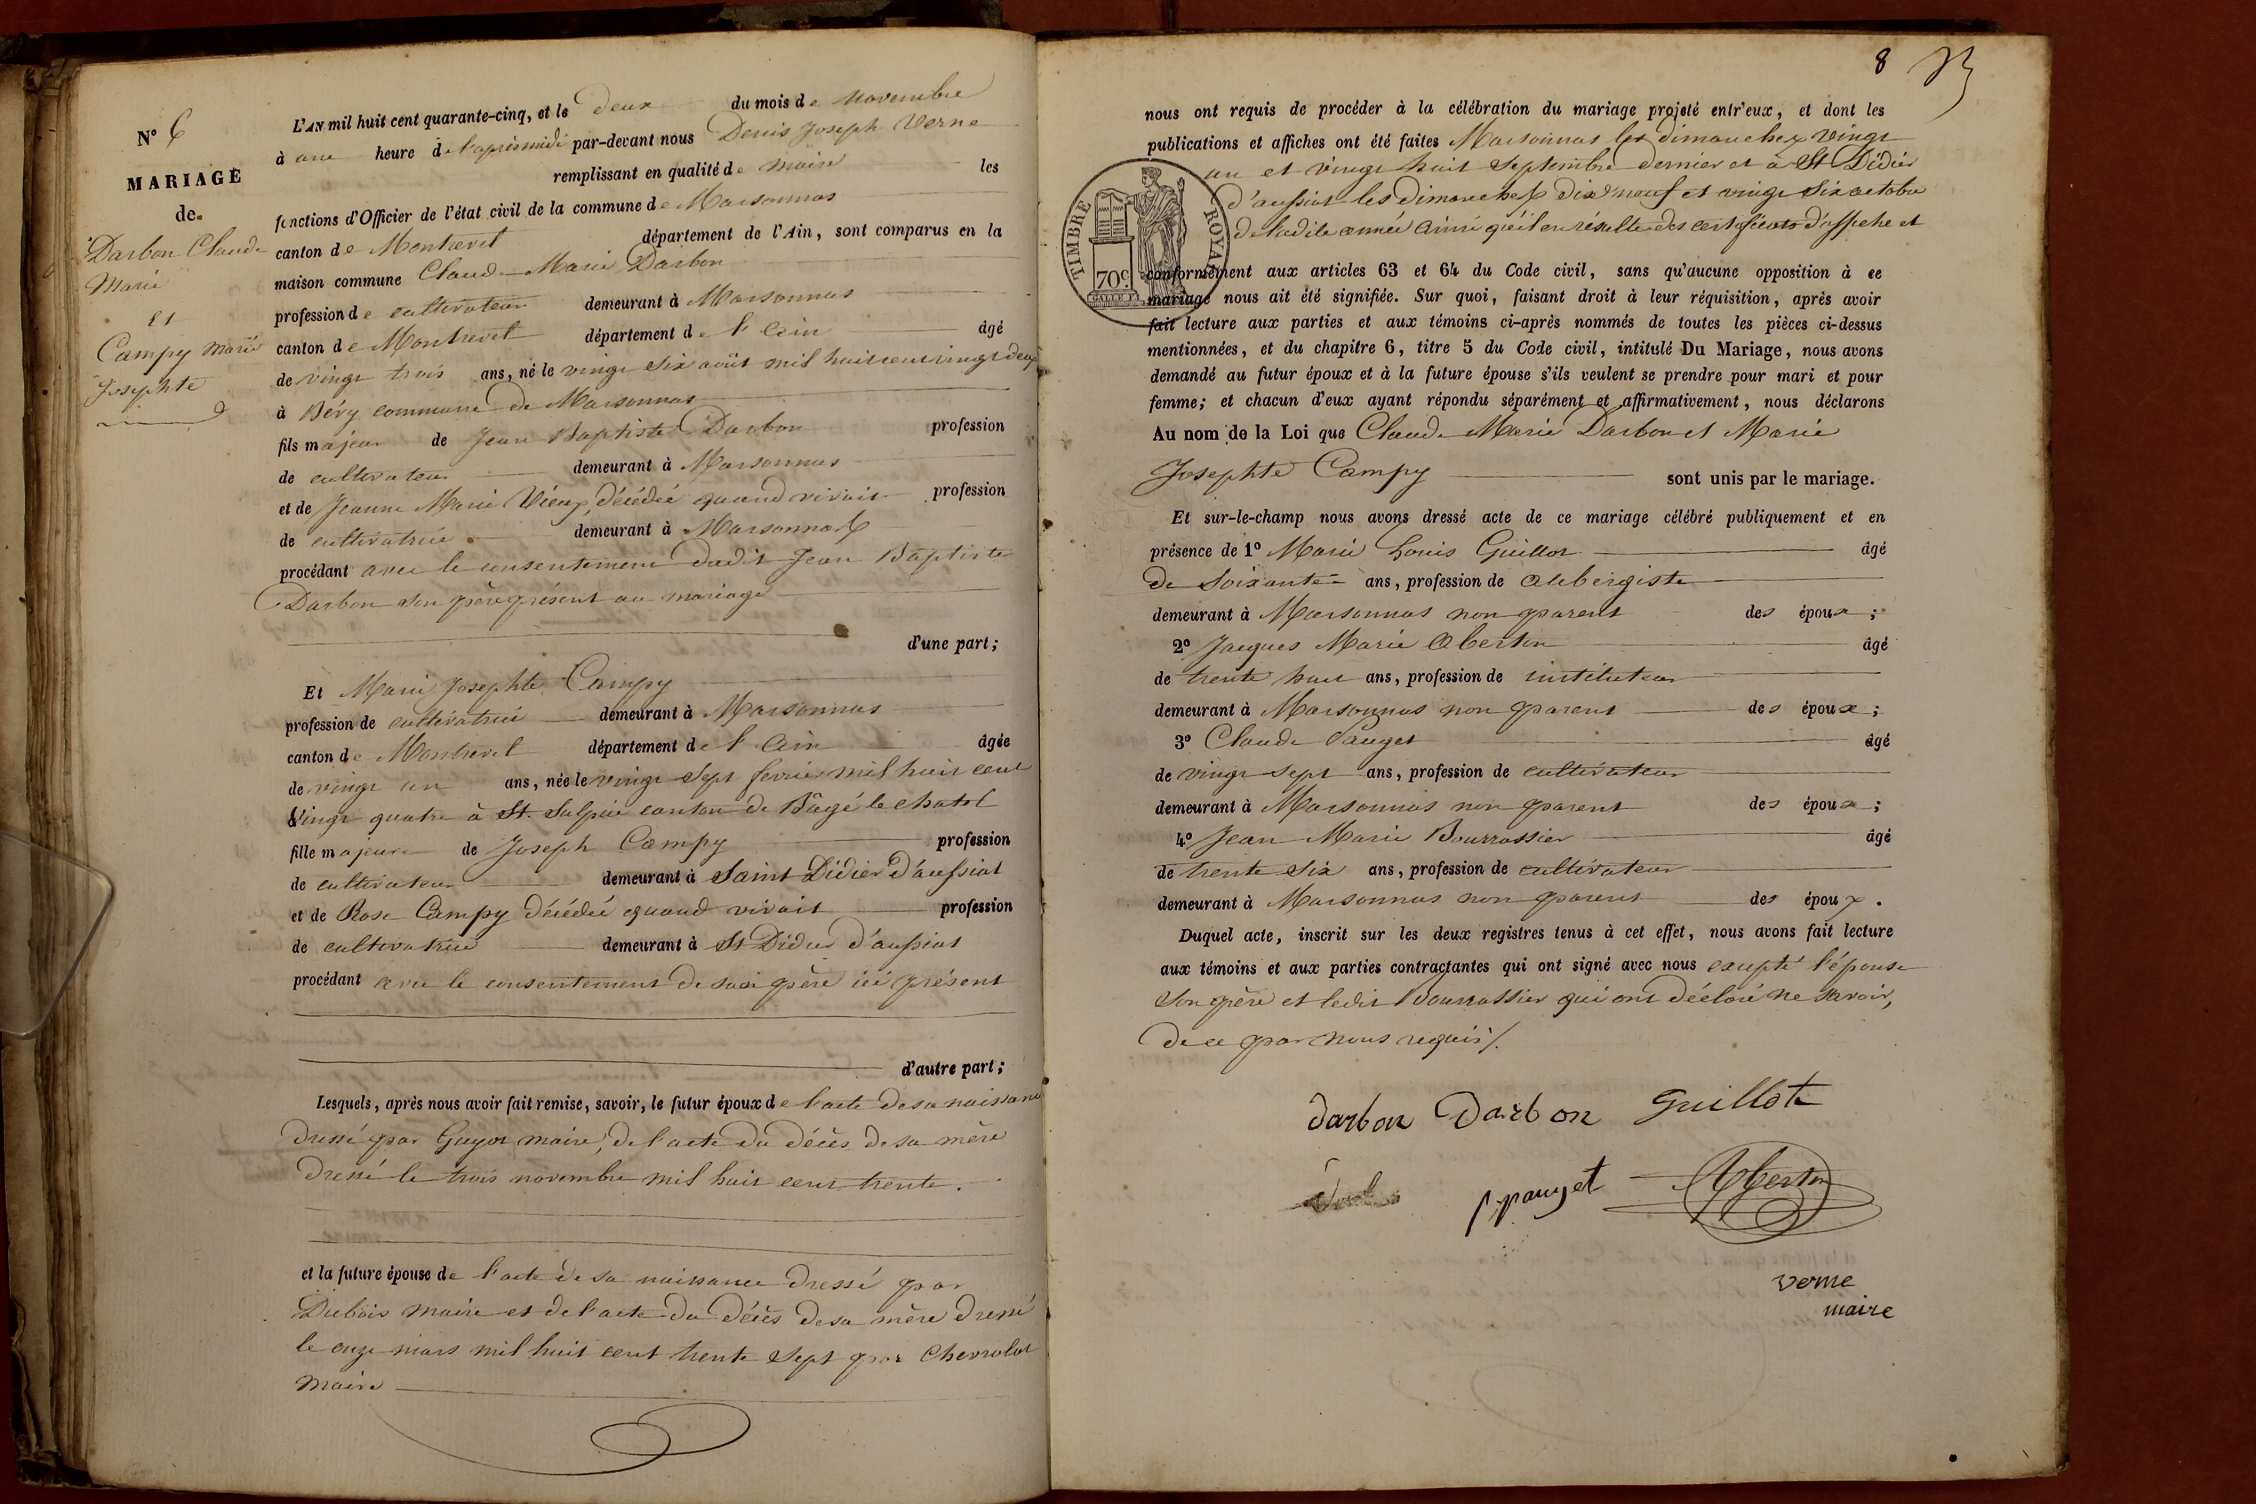 N° 6
MARIAGE
de
Darbon Claude
Marie
et
Campy Marie
Josephte
L'AN mil huit cent quarante-cinq, et le deux du mois de Novembre
à une heure de l'après midi par-devant nous Denis Joseph Verne
remplissant en qualité de maire les
fonctions d'Officier de l'état civil de la commune de Marsonnas
canton de Montrevel département de l'Ain, sont comparus en la
maison commune Claude Marie Darbon
profession de cultivateur demeurant à Marsonnas
canton de Montrevel département de l'ain âgé
de vingt trois ans, né le vingt six août mil huit cent vingt deux
à Béry commune de Marsonnas
fils majeur de Jean Baptiste Darbon profession
de cultivateur demeurant à Marsonnas
et de Jeanne Marie Vieux, décédée quand vivait profession
de cultivatrice demeurant à Marsonnas
procédant avec le consentement dudit Jean Baptiste
Darbon son père présent au mariage
d'une part;
Et Marie Josephte Campy
profession de cultivatrice demeurant à Marsonnas
canton de Montrevel département de l'ain âgée
de vingt un ans, née le vingt sept fevrier mil huit cent
Vingt quatre à St. Sulpice canton de Bâgé le chatel
fille majeure de Joseph Campy profession
de cultivateur demeurant à Saint Didier d'aussiat
et de Rose Campy décédée quand vivait profession
de cultivatrice demeurant à St Didier d'aussiat
procédant avec le consentement de son père ici présent
d'autre part;
Lesquels, après nous avoir fait remise, savoir, le futur époux de l'acte de sa naissance
dressé par Guyot maire, de l'acte du décès de sa mère
dressé le trois novembre mil huit cent trente.
et la future épouse de l'acte de sa naissance dressé par
Dubois maire et de l'acte du décès de sa mère dressé
le onze mars mil huit cent trente sept par Chevrolat
maire
8
nous ont requis de procéder à la célébration du mariage projeté entr'eux, et dont les
publications et affiches ont été faites Marsonnas les dimanches vingt
un et vingt huit septembre dernier et à St Didier
d'aussiat les dimanches dix neuf et vingt six octobre
de ladite année ainsi qu'il en résulte des certificats d'affiche et
TIMBRE ROYAL
70c
conformément aux articles 63 et 64 du Code civil, sans qu'aucune opposition à ce
mariage nous ait été signifiée. Sur quoi, faisant droit à leur réquisition, après avoir
fait lecture aux parties et aux témoins ci-après nommés de toutes les pièces ci-dessus
mentionnées, et du chapitre 6, titre 5 du Code civil, intitulé Du Mariage, nous avons
demandé au futur époux et à la future épouse s'ils veulent se prendre pour mari et pour
femme; et chacun d'eux ayant répondu séparément et affirmativement, nous déclarons
Au nom de la Loi que Claude Marie Darbon et Marie
Josephte Campy sont unis par le mariage.
Et sur-le-champ nous avons dressé acte de ce mariage célébré publiquement et en
présence de 1° Marie Louis Guillot âgé
de soixante ans, profession de aubergiste
demeurant à Marsonnas non parent des époux;
2° Jacques Marie Aberton âgé
de trente huit ans, profession de instituteur
demeurant à Marsonnas non parent des époux;
3° Claude Pauget âgé
de vingt sept ans, profession de cultivateur
demeurant à Marsonnas non parent des époux;
4° Jean Marie Bourrassier âgé
de trente six ans, profession de cultivateur
demeurant à Marsonnas non parent des époux.
Duquel acte, inscrit sur les deux registres tenus à cet effet, nous avons fait lecture
aux témoins et aux parties contractantes qui ont signé avec nous excepté l'épouse
son père et ledit Bourrassier qui ont déclaré ne savoir,
de ce par nous requis/.
darbon Darbon Guillot
pauget Aberton
verne
maire